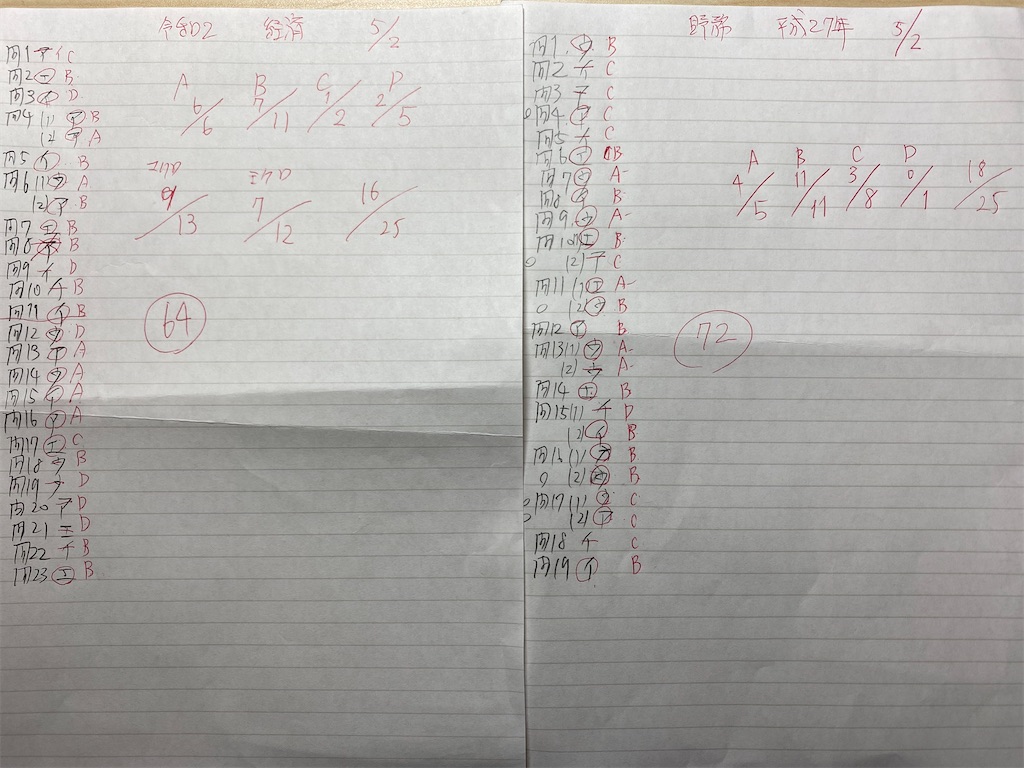 令和02 経済 5/2
問1 ア イ C
問2 エ B
問3 イ D
A B C D
6/6 7/11 1/2 2/5
問4 (1) ア B
(2) ア A
問5 イ B
問6 (1) ウ A
(2) ア B
マクロ ミクロ
9/13 7/12 16/25
問7 エ B
問8 B
問9 イ D
問10 イ B
問11 イ B
64
問12 ウ D
問13 ア A
問14 ウ A
問15 イ A
問16 ア A
問17 エ C
問18 ウ B
問19 ウ D
問20 ア D
問21 エ D
問22 イ B
問23 エ B
財務 平成27年 5/2
問1 ウ B
問2 イ C
問3 ア C
問4 ア C
問5 イ C
問6 B
A B C D
4/5 11/11 3/8 0/1 18/25
問7 ウ A-
問8 B
問9 ウ A-
問10(1) エ B
(2) ア C
問11 (1) エ A-
(2) ウ B
問12 ア B
72
問13(1) ウ A-
(2) ウ A-
問14 エ B
問15(1) イ D
(2) イ B
問16(1) ウ B
(2) B
問17(1) C
(2) ア C
問18 イ C
問19 イ B